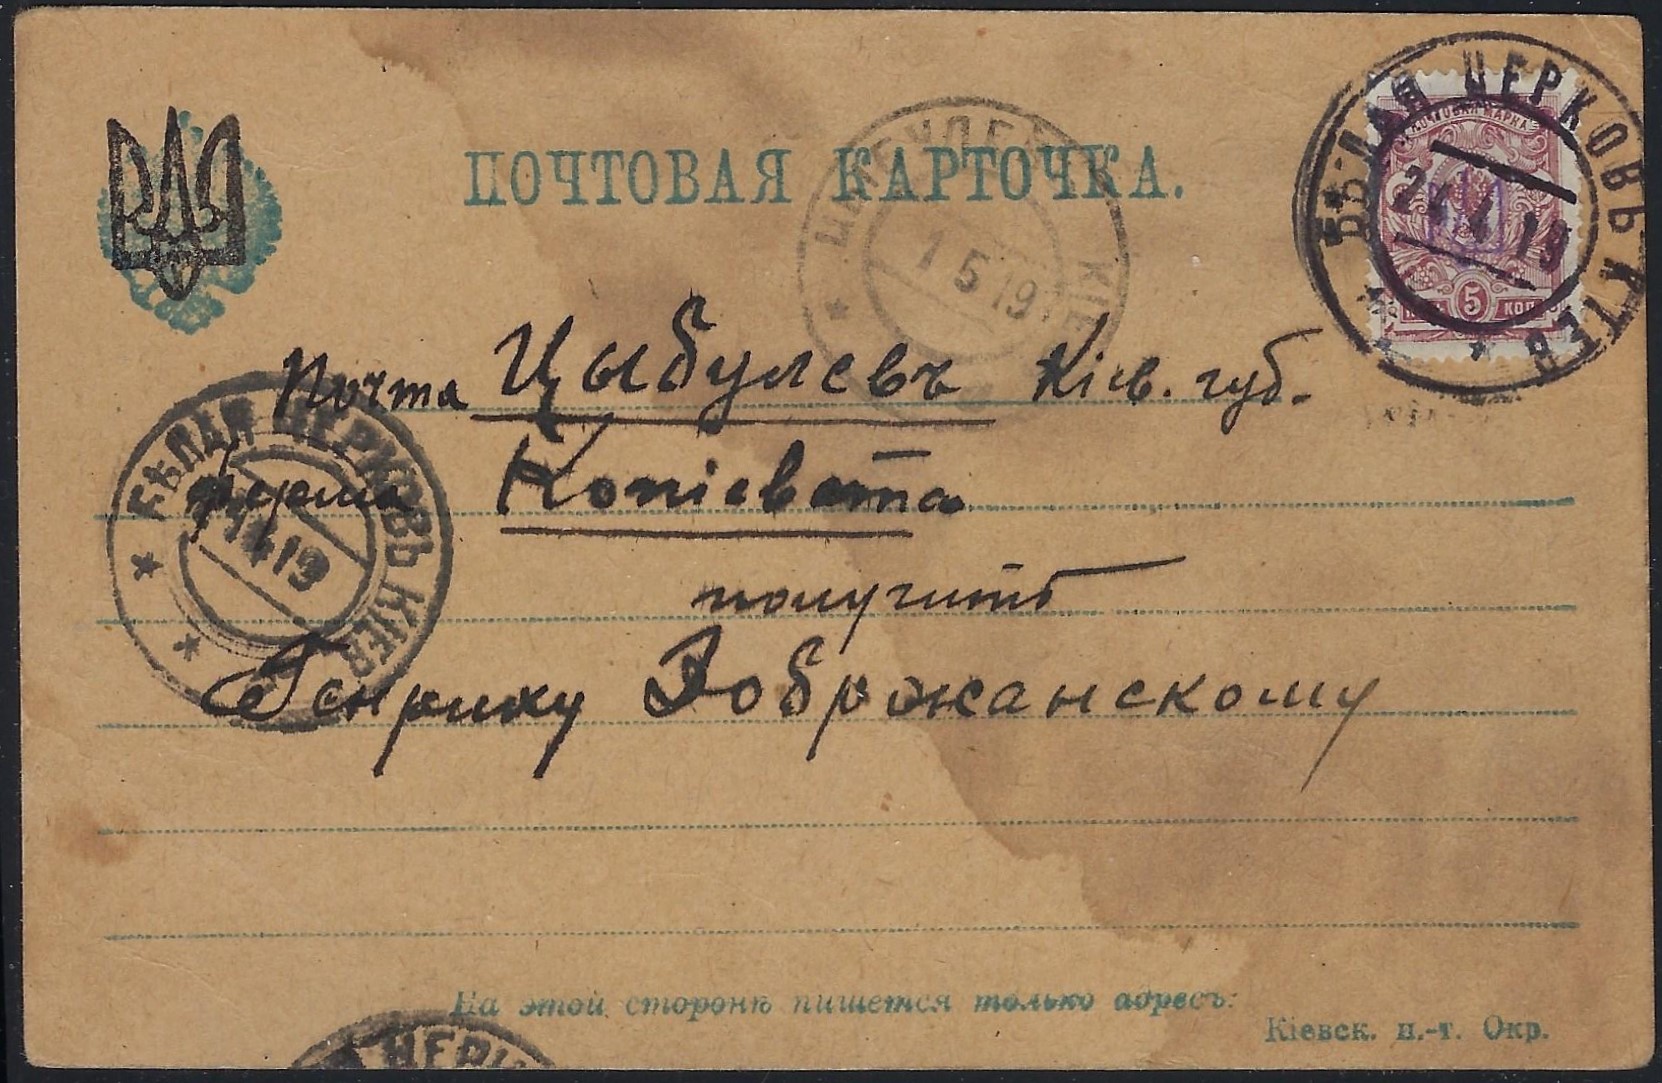 ПОЧТОВАЯ КАРТОЧКА.
ПОЧТОВАЯ МАРКА
5
БѢЛАЯ ЦЕРКОВЬ КІЕВ
24 4 19
КІЕВ
1 5 19
Почта Цыбулевъ Кіев. губ.
ферма Копіевата
БѢЛАЯ ЦЕРКОВЬ КІЕВ
4 19
получить
Генриху Добржанскому
На этой сторонѣ пишется только адресъ.
Кіевск. п.-т. Окр.